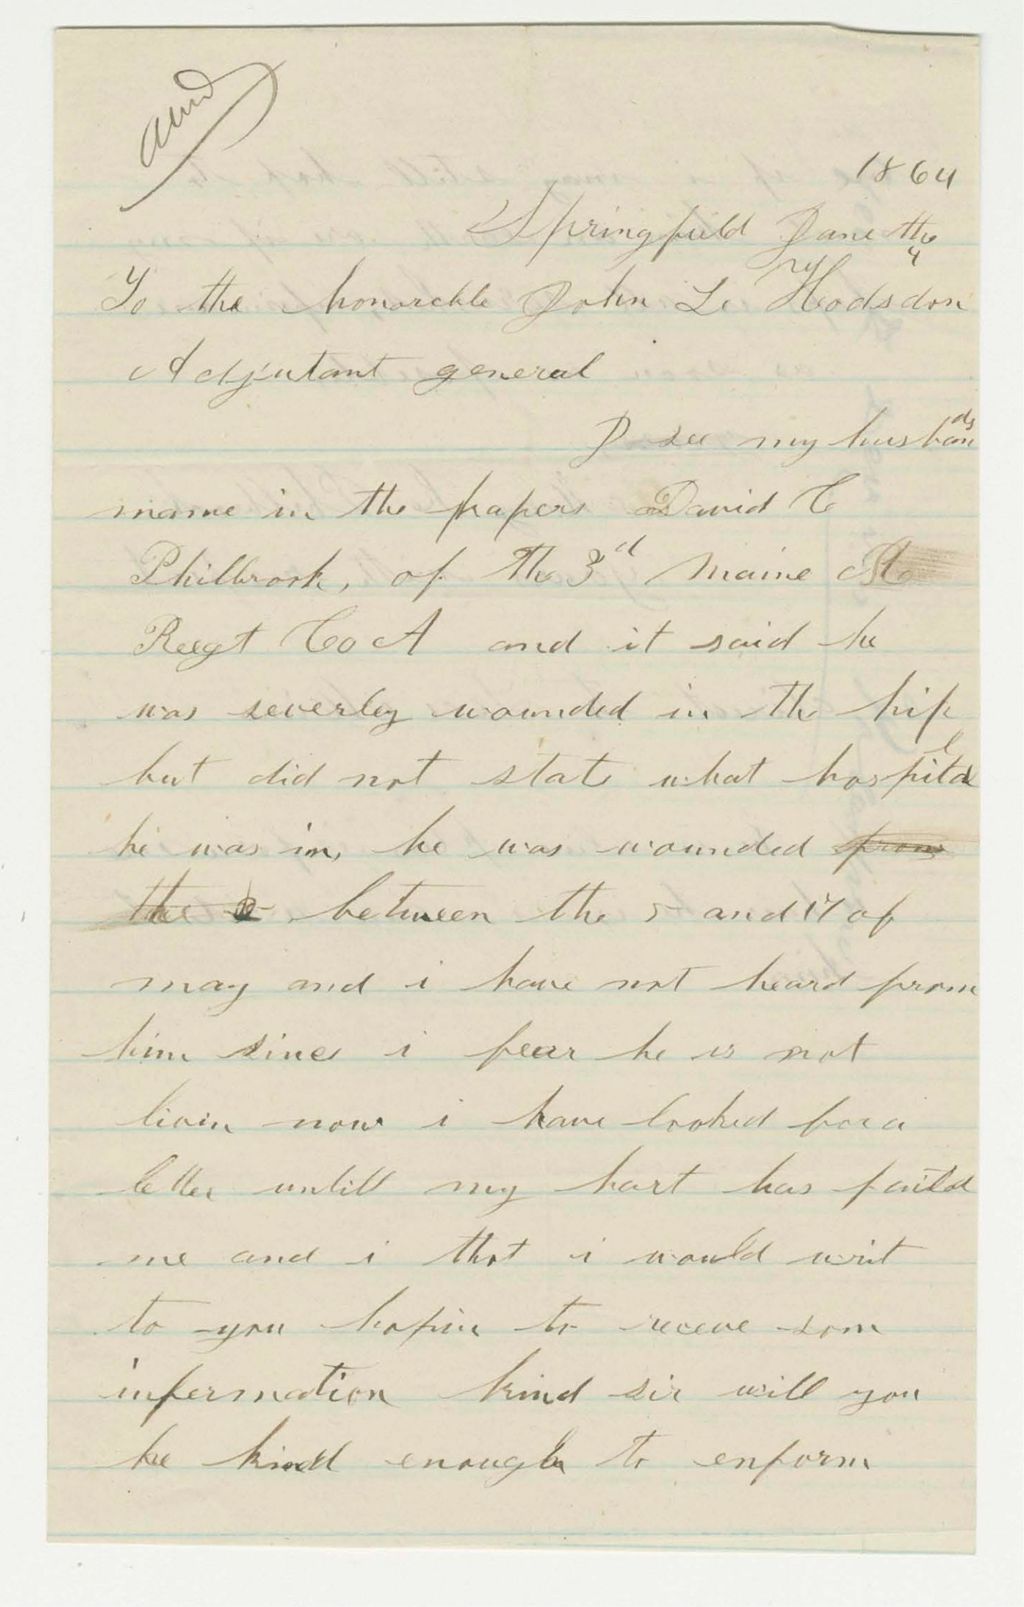 and
1864
Springfield June the 4
To the honorable John L Hodsdon
Adjutant general
I see my husbands
name in the papers David C
Philbrook, of the 3d Maine
Reegt Co A and it said he
was severley wounded in the hip
but did not state what hospital
he was in, he was wounded from
the between the 5 and 17 of
may and i have not heard from
him sines i fear he is not
livin now i have looked for a
letter untill my hart has faild
me and i that i would writ
to you hopin to receve som
infermation kind sir will you
be kind enough to enform